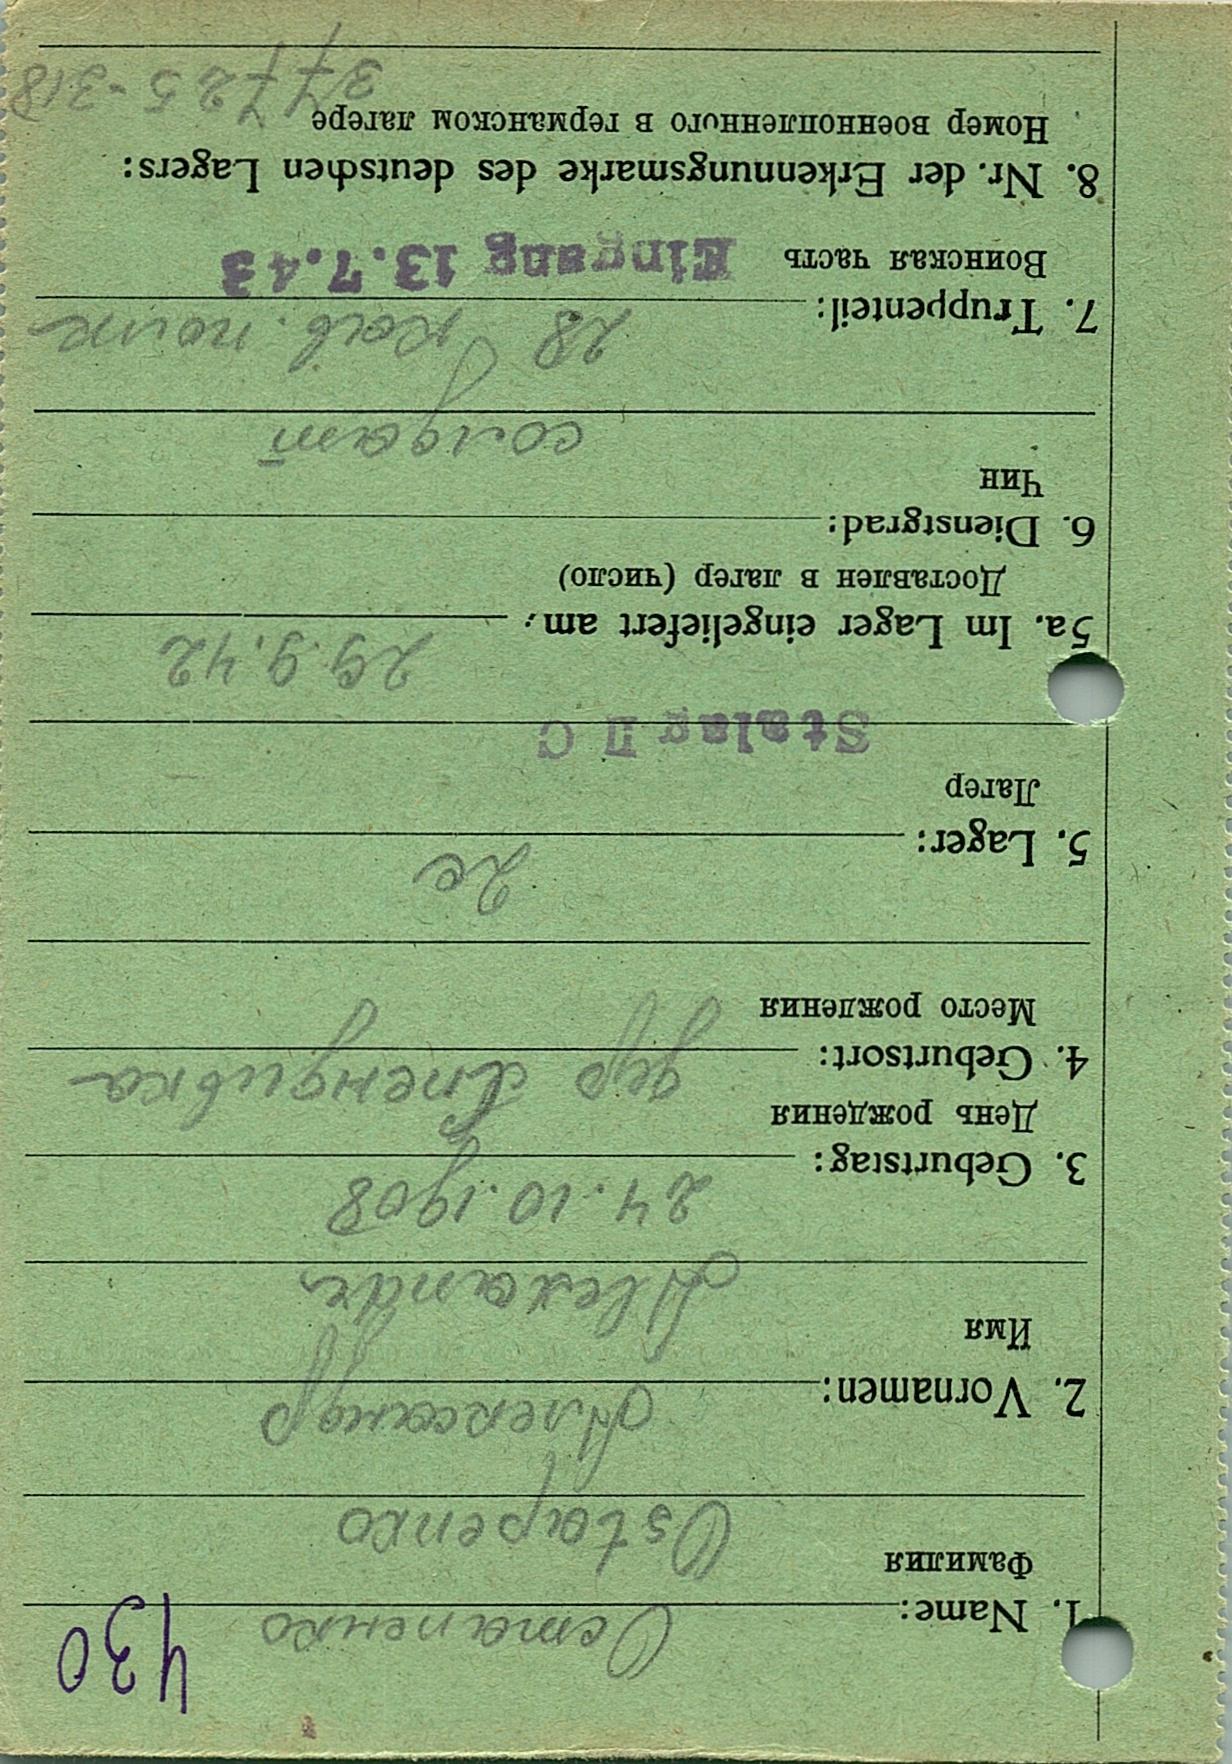 430
1. Name: Остапенко
Фамилия
Ostapenko
2. Vornamen: Александр
Имя
Alexandr
3. Geburtstag: 24.10.1908
День рождения
4. Geburtsort: дер
Место рождения
5. Lager: 2c
Лагер
Stalag II C
5a. Im Lager eingeliefert am: 29.9.42
Доставлен в лагер (число)
6. Dienstgrad:
Чин
солдат
7. Truppenteil: 28 кав. полк
Воинская часть Eingang 13.7.43
8. Nr. der Erkennungsmarke des deutschen Lagers:
Номер военнопленного в германском лагере
37725-318